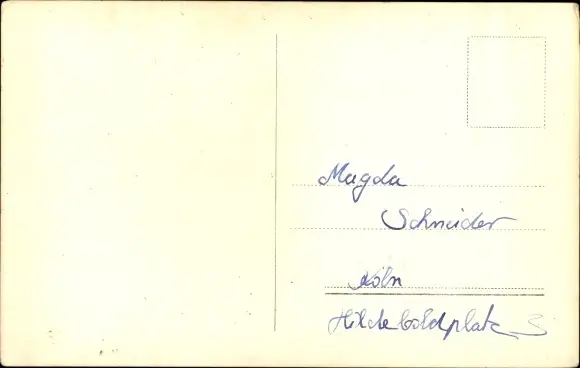 Magda
Schneider
Köln
Hildeboldplatz